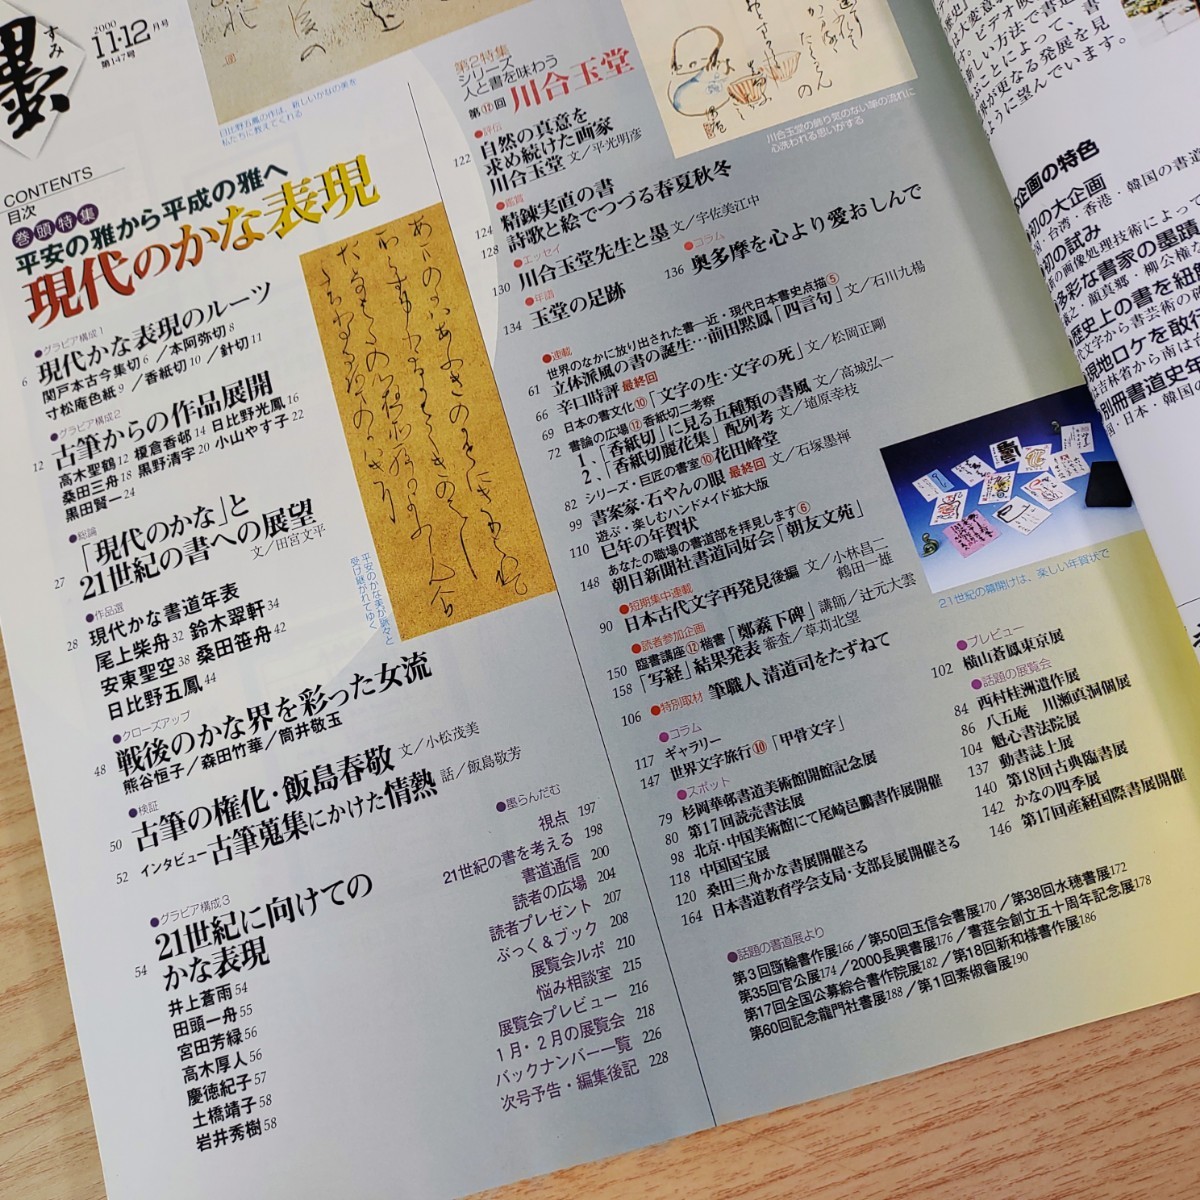 墨
すみ
2000
11・12月号
第147号
CONTENTS
目次
巻頭特集
平安の雅から平成の雅へ
現代のかな表現
●グラビア構成1
6 現代かな表現のルーツ
関戸本古今集切6／本阿弥切8
寸松庵色紙9／香紙切10／針切11
●グラビア構成2
12 古筆からの作品展開
高木聖鶴12 榎倉香邨14 日比野光鳳16
桑田三舟18 黒野清宇20 小山やす子22
黒田賢一24
●総論
27 「現代のかな」と
21世紀の書への展望
文／田宮文平
●作品選
28 現代かな書道年表
尾上柴舟32 鈴木翠軒34
安東聖空38 桑田笹舟42
日比野五鳳44
●クローズアップ
48 戦後のかな界を彩った女流
熊谷恒子／森田竹華／筒井敬玉
●検証
50 古筆の権化・飯島春敬 文／小松茂美
52 インタビュー 古筆蒐集にかけた情熱 話／飯島敬芳
●グラビア構成3
54 21世紀に向けての
かな表現
井上蒼雨54
田頭一舟55
宮田芳緑56
高木厚人56
慶徳紀子57
土橋靖子58
岩井秀樹58
●墨らんだむ
視点 197
21世紀の書を考える 198
書道通信 200
読者の広場 204
読者プレゼント 207
ぶっく＆ブック 208
展覧会ルポ 210
悩み相談室 215
展覧会プレビュー 216
1月・2月の展覧会 218
バックナンバー一覧 226
次号予告・編集後記 228
日比野五鳳の作は、新しいかなの美を
私たちに教えてくれる
平安のかな美が脈々と
受け継がれてゆく
第2特集
シリーズ
人と書を味わう
第⑫回 川合玉堂
●評伝
122 自然の真意を
求め続けた画家
川合玉堂 文／平光明彦
●鑑賞
124 精錬実直の書
128 詩歌と絵でつづる春夏秋冬
●エッセイ
130 川合玉堂先生と墨 文／宇佐美江中
●年譜
134 玉堂の足跡
●コラム
136 奥多摩を心より愛おしんで
川合玉堂の飾り気のない筆の流れに
心洗われる思いがする
●連載
世界のなかに放り出された書―近・現代日本書史点描⑤
61 立体派風の書の誕生…前田黙鳳「四言句」文／石川九楊
66 辛口時評 最終回
69 日本の書文化⑩「文字の生・文字の死」文／松岡正剛
書論の広場⑫香紙切二考察
72 1、「香紙切」に見る五種類の書風 文／高城弘一
2、「香紙切麗花集」配列考 文／埴原幸枝
82 シリーズ・巨匠の書室⑩花田峰堂
99 書案家・石やんの眼 最終回 文／石塚墨禅
遊ぶ・楽しむハンドメイド拡大版
110 巳年の年賀状
あなたの職場の書道部を拝見します⑥
148 朝日新聞社書道同好会「朝友文苑」
●短期集中連載
90 日本古代文字再発見後編 文／小林昌二
鶴田一雄
●読者参加企画
150 臨書講座⑫楷書「鄭羲下碑」講師／辻元大雲
158 「写経」結果発表 審査／草苅北望
106 ●特別取材 筆職人 清道司をたずねて
●コラム
117 ギャラリー
147 世界文字旅行⑩「甲骨文字」
●スポット
79 杉岡華邨書道美術館開館記念展
80 第17回読売書法展
98 北京・中国美術館にて尾崎邑鵬書作展開催
118 中国国宝展
120 桑田三舟かな書展開催さる
164 日本書道教育学会支局・支部長展開催さる
21世紀の幕開けは、楽しい年賀状で
●プレビュー
102 横山蒼鳳東京展
●話題の展覧会
84 西村桂洲遺作展
86 八五庵 川瀬真洞個展
104 魁心書法院展
137 動書誌上展
140 第18回古典臨書展
142 かなの四季展
146 第17回産経国際書展開催
●話題の書道展より
第3回瓈輪書作展166／第50回玉信会書展170／第38回水穂書展172
第35回官公展174／2000長興書展176／書莚会創立五十周年記念展178
第17回全国公募綜合書作院展182／第18回新和様書作展186
第60回記念龍門社書展188／第1回素俶會展190
企画の特色
初の大企画
初の試み
歴史上の書を紐
現地ロケを敢行
別冊書道史年